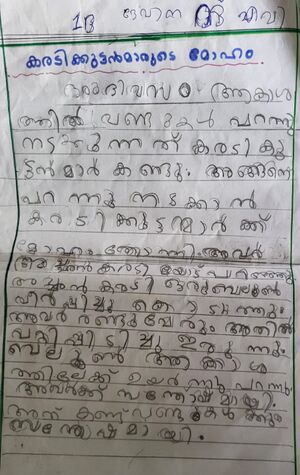 1B ദേവിന എ വി
കരടിക്കുട്ടൻമാരുടെ മോഹം
ഒരു ദിവസം ആകാശ
ത്തിൽ വണ്ടുകൾ പറന്നു
നടക്കുന്നത് കരടി കു
ട്ടൻമാർ കണ്ടു. അങ്ങനെ
പറന്നു നടക്കാൻ
കരടിക്കുട്ടന്മാർക്ക്
മോഹം തോന്നി. അവർ
അച്ഛൻ കരടിയോട് പറഞ്ഞു
അച്ഛൻ കരടി ഒരു ബലൂൺ
വീർപ്പിച്ചു കൊടുത്തു.
അവർ രണ്ടുപേരും അതിൽ
പറ്റിപിടിച്ചു ഇരുന്നു.
ബലൂൺ ആകാശ
ത്തിലേക്ക് ഉയർന്നു പറന്നു.
അവർക്ക് സന്തോഷമായി.
അത് കണ്ട് വണ്ടുകൾക്കും
സന്തോഷമായി.